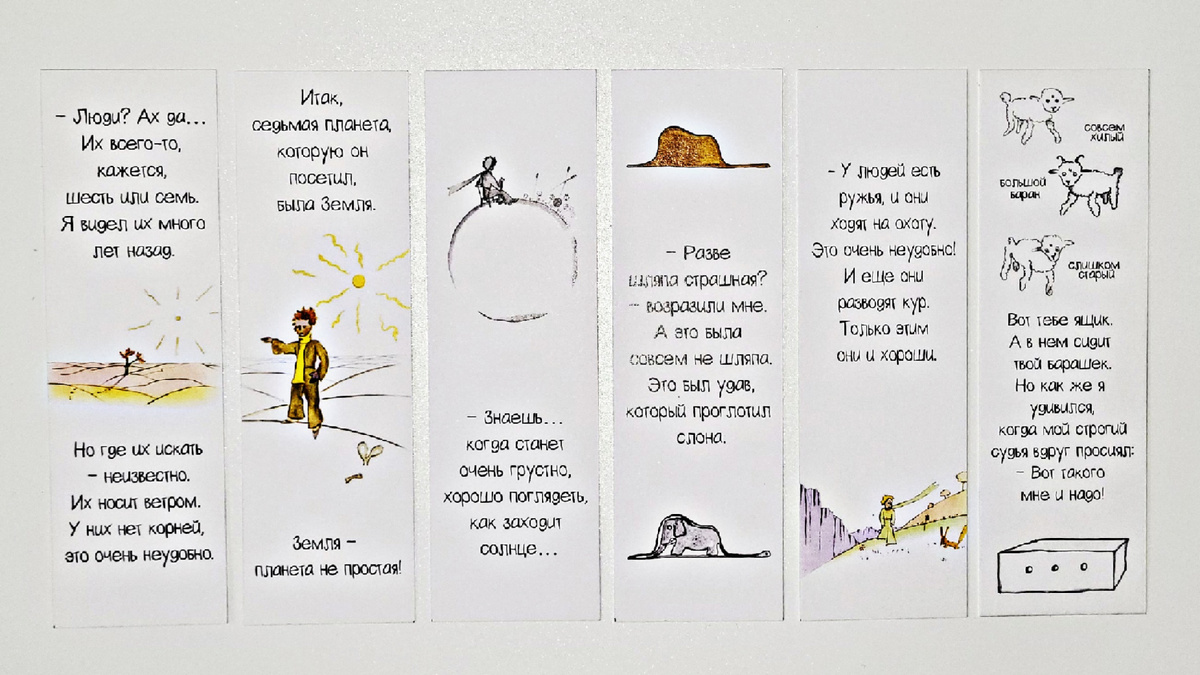 – Люди? Ах да...
Их всего-то,
кажется,
шесть или семь.
Я видел их много
лет назад.
Но где их искать
– неизвестно.
Их носит ветром.
У них нет корней,
это очень неудобно.
Итак,
седьмая планета,
которую он
посетил,
была Земля.
Земля –
планета не простая!
– Знаешь...
когда станет
очень грустно,
хорошо поглядеть,
как заходит
солнце...
– Разве
шляпа страшная?
– возразили мне.
А это была
совсем не шляпа.
Это был удав,
который проглотил
слона.
– У людей есть
ружья, и они
ходят на охоту.
Это очень неудобно!
И еще они
разводят кур.
Только этим
они и хороши.
совсем
хилый
большой
баран
слишком
старый
Вот тебе ящик.
А в нем сидит
твой барашек.
Но как же я
удивился,
когда мой строгий
судья вдруг просиял:
– Вот такого
мне и надо!